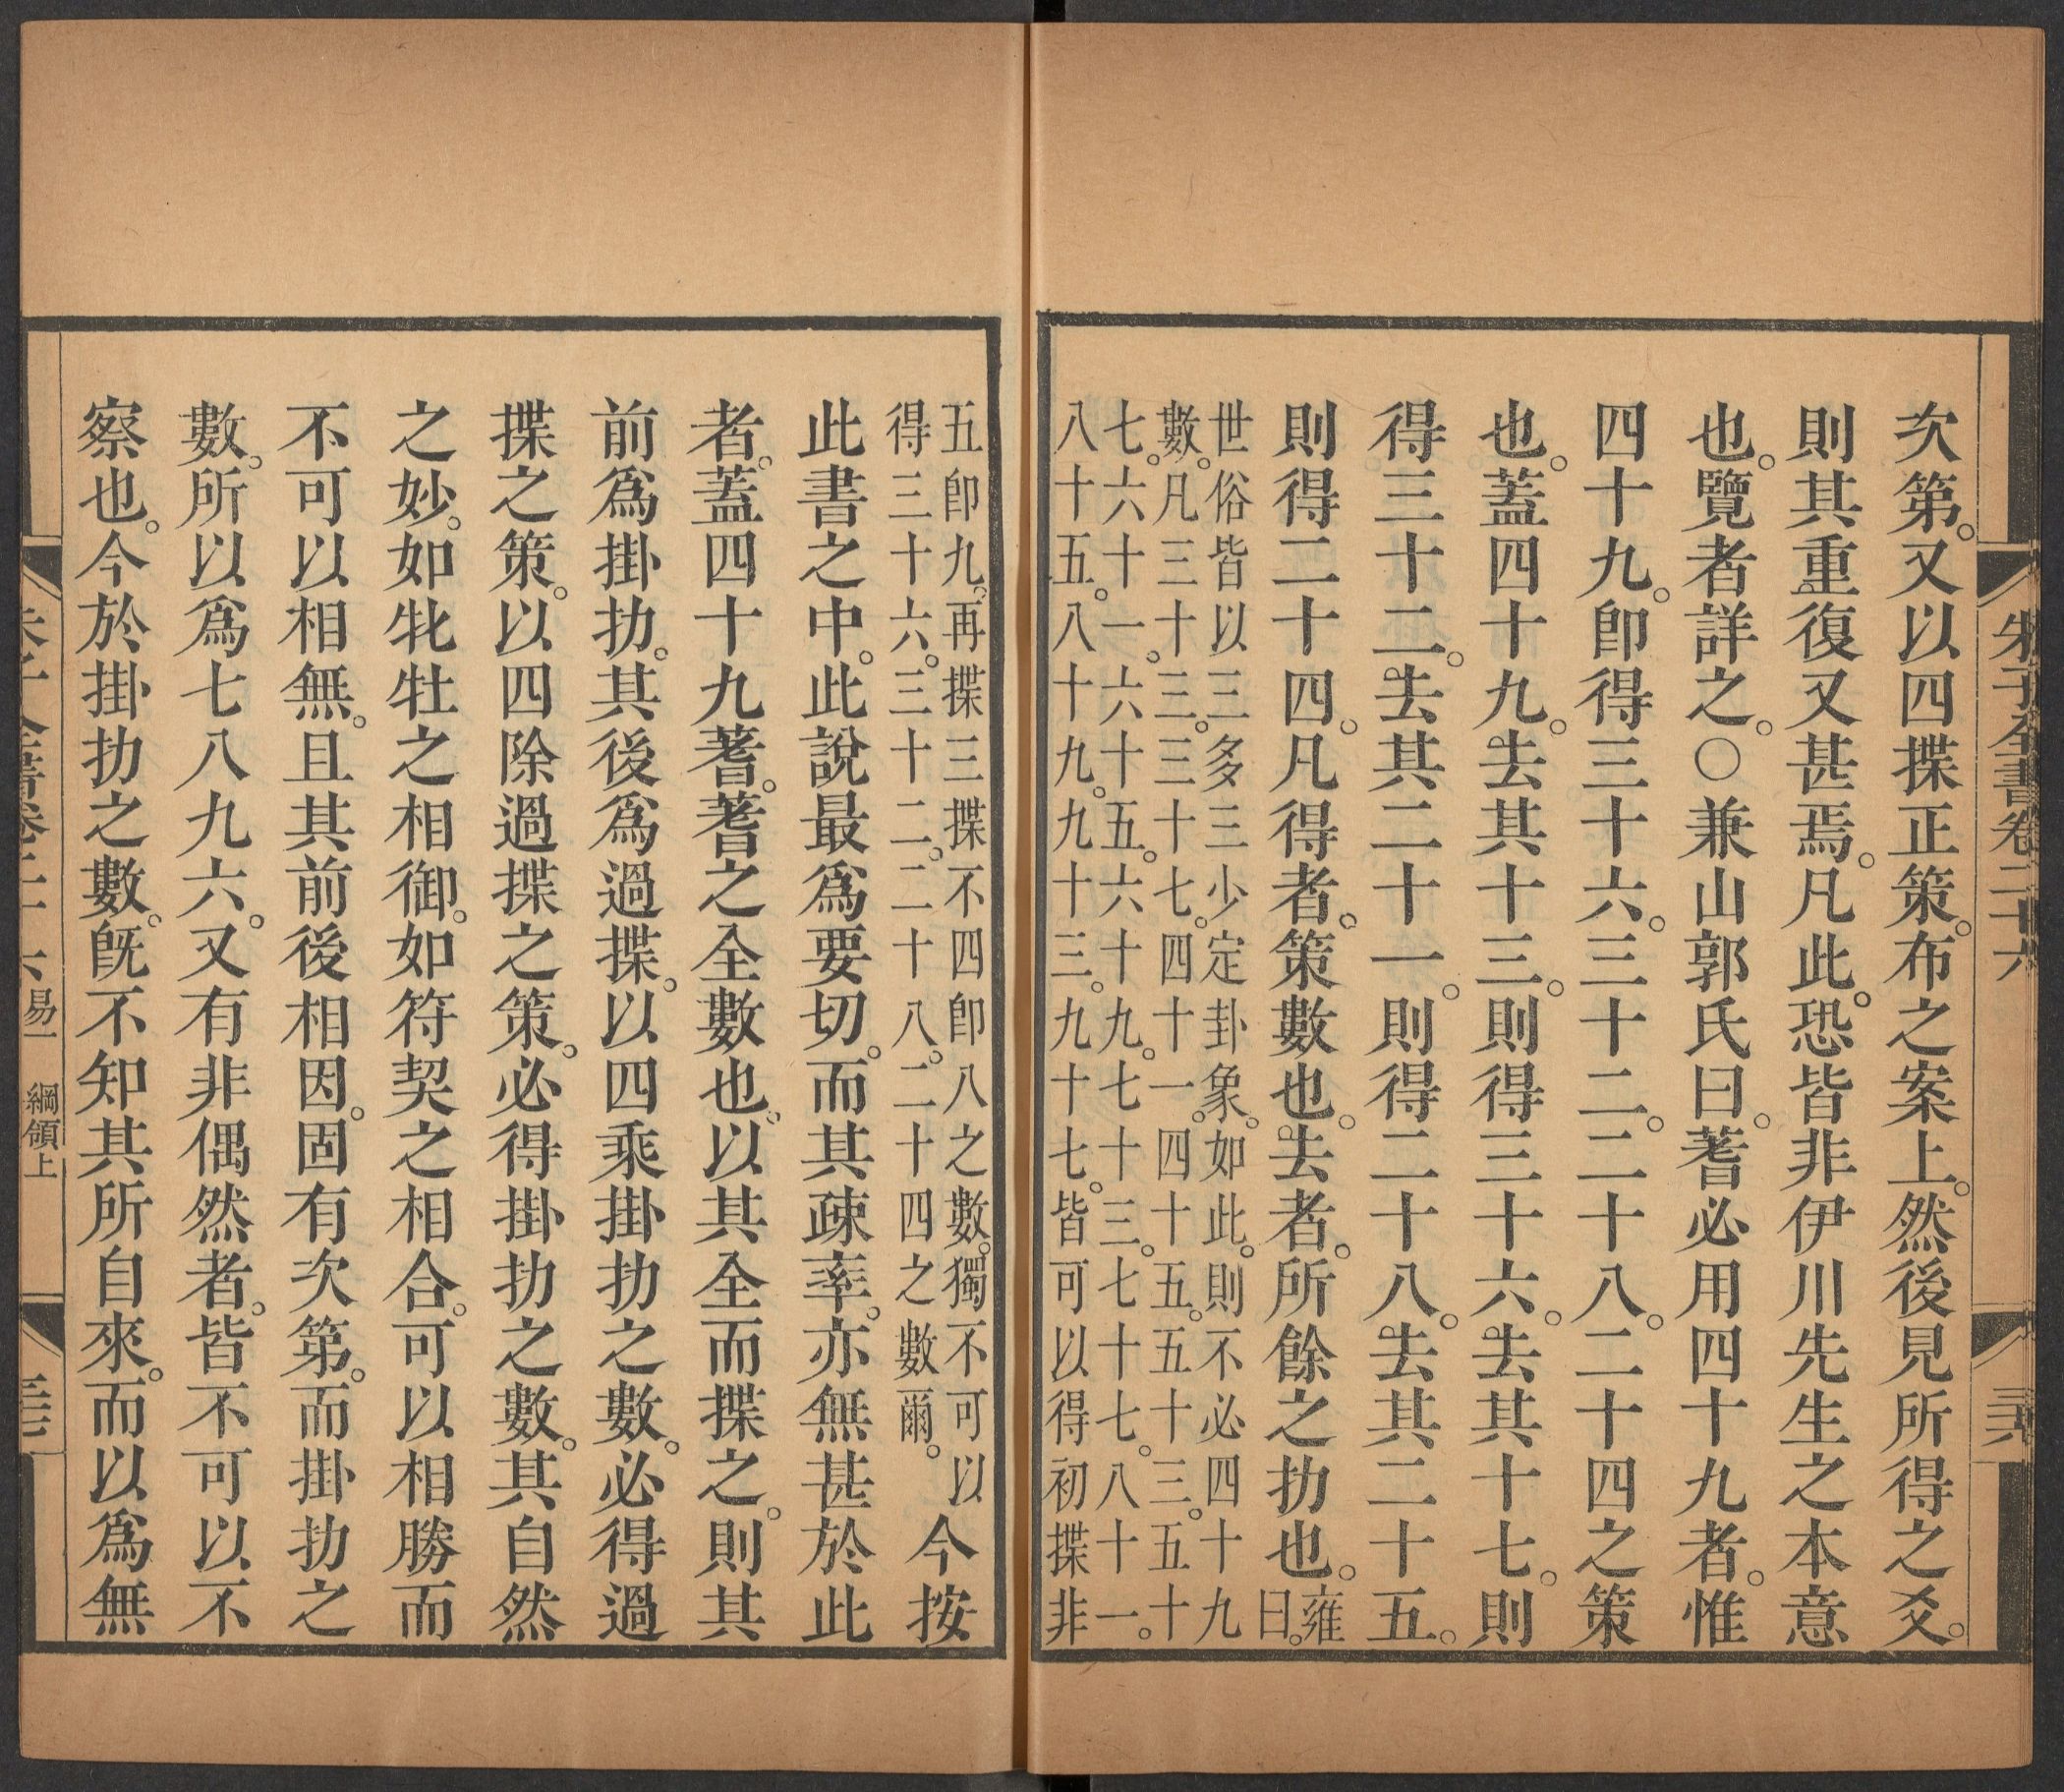 朱子全書卷二十六
次第。又以四揲正策。布之案上。然後見所得之爻。
則其重復又甚焉。凡此。恐皆非伊川先生之本意
也。覽者詳之。○兼山郭氏曰。蓍必用四十九者。惟
四十九。即得三十六。三十二。二十八。二十四之策
也。蓋四十九。去其十三。則得三十六。去其十七。則
得三十二。去其二十一。則得二十八。去其二十五。
則得二十四。凡得者。策數也。去者。所餘之扐也。雍曰。
世俗皆以三多三少定卦象。如此。則不必四十九
數。凡三十三。三十七。四十一。四十五。五十三。五十
七。六十一。六十五。六十九。七十三。七十七。八十一。
八十五。八十九。九十三。九十七。皆可以得初揲非
五即九。再揲三揲不四即八之數。獨不可以
得三十六。三十二。二十八。二十四之數爾。今按
此書之中。此說最爲要切。而其疎率。亦無甚於此
者。蓋四十九蓍。蓍之全數也。以其全而揲之。則其
前爲掛扐。其後爲過揲。以四乘掛扐之數。必得過
揲之策。以四除過揲之策。必得掛扐之數。其自然
之妙。如牝牡之相御。如符契之相合。可以相勝而
不可以相無。且其前後相因。固有次第。而掛扐之
數。所以爲七八九六。又有非偶然者。皆不可以不
察也。今於掛扐之數。旣不知其所自來。而以爲無
易一 綱領上